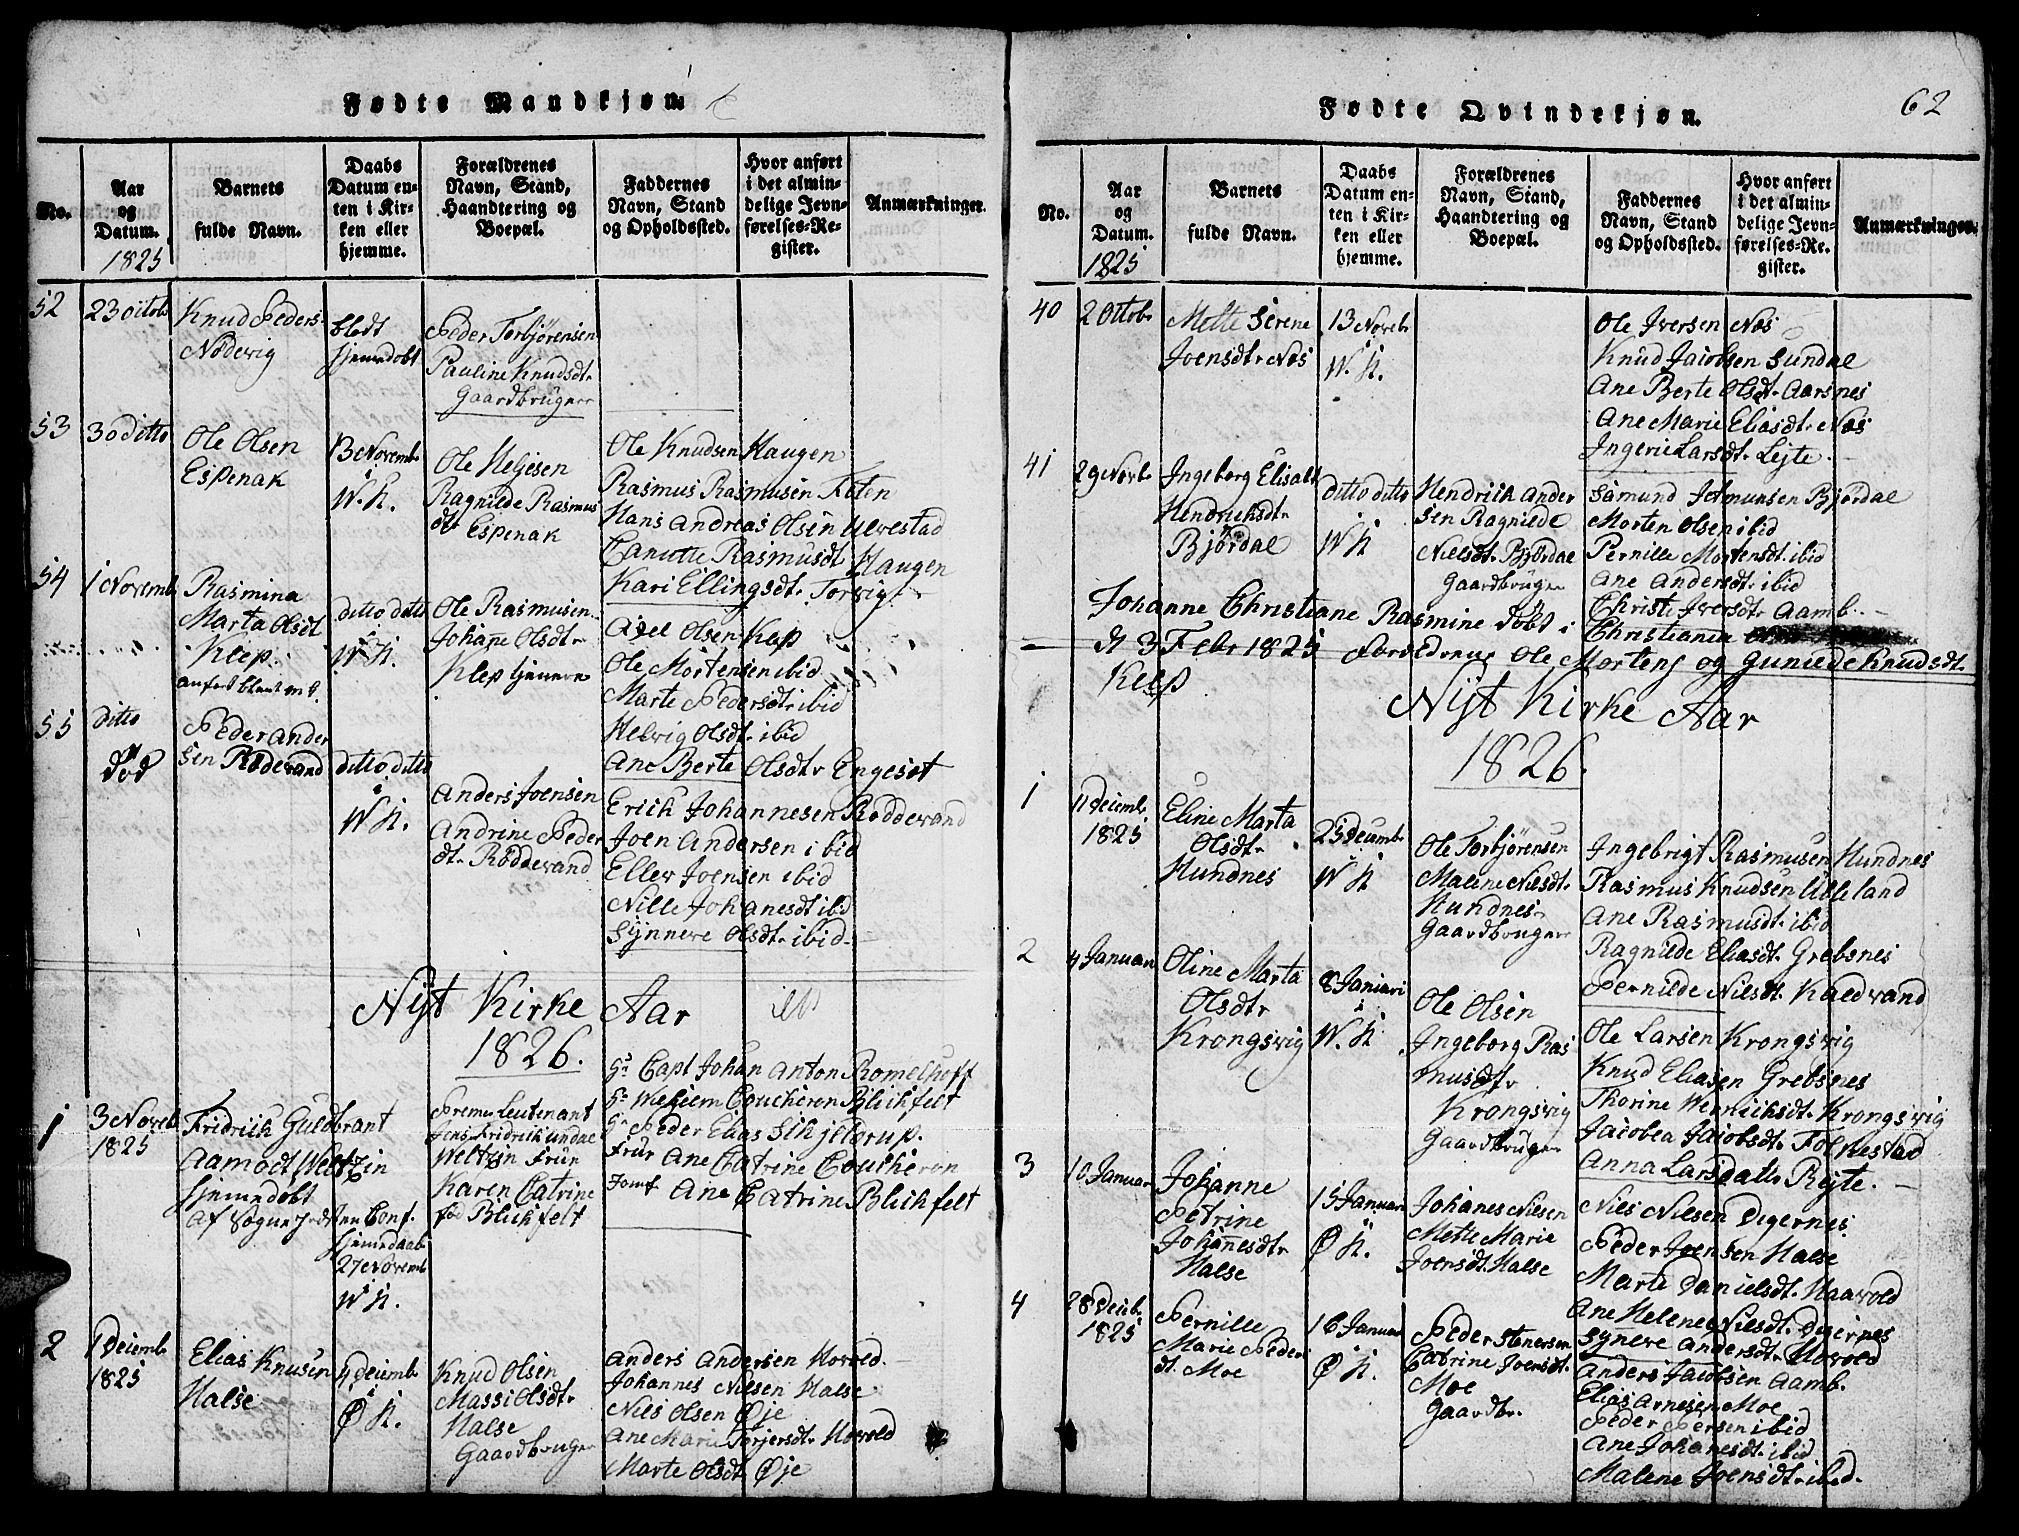 Fødte Mandkjøn.
No.
Aar
og
Datum.
1825
Barnets
fulde Navn.
Daabs
Datum en-
ten i Kir-
ken eller
hjemme.
Forældrenes
Navn, Stand,
Haandtering og
Boepæl.
Faddernes
Navn, Stand
og Opholdssted.
Hvor anført
i det almin-
delige Jevn-
førelses-Re-
gister.
Anmærkninger.
52
23 octob
Knud Peders.
Nødevig
blodt
hjemedobt
Peder Torbjørensen
Pauline Knudsdt.
Gaardbruger
53
30 ditto
Ole Olsen
Espenak
13 Novemb
i
W. K.
Ole Heljesen
Ragnilde Rasmus
dt Espenak
Ole Knudsen Haugen
Rasmus Rasmusen Feten
Hans Andreas Olsen Ulvestad
Canutte Rasmusdt. Haugen
Kari Ellingsdt. Torvig
54
1 Novemb
Rasmina
Marta Olsdt
Klep.
ditto ditto
W K.
Ole Rasmusen
Johane Olsdtr
Klep tjenere
Axel Olsen Klep
Ole Mortensen ibid
Marte Pedersdt. ibid
Helvig Olsdt. ibid
Ane Berte Olsdtr Engeset
55
ditto
død
Peder Ander
sen Rødevand
ditto ditto
i
W K.
Anders Joensen
Andrine Peder
dt. Røddevand
Erich Johannesen Rødderand
Joen Andersen ibid
Eller Joensen ibid
Nille Johanesdt ibid
Synnere Olsdt. ibid
Nyt Kirke Aar
1826.
1
3 Noveb
1825
Fridrich Guldbrant
Aamodt Weltzin
hjemedobt
Premi Leutenant
Weltzin Frue
Karen Catrine
fød Blichfelt
hjemedaab
27 Novemb
i
W K.
Hr Capt Johan Anton Romelhoff
Hr Welhem Coucheron Blichfelt
Hr Peder Elias
Frue Ane Catrine Coucheron
Jomf Ane Catrine Blichfelt
2
1 Decemb
1825
Elias Knusen
Halse
4 Decemb
i
Ø K.
Knud Olsen
Massi Olsdtr
Halse
Gaardbruger
Anders Andersen Hovold
Johannes Nilsen Halse
Nils Olsen Øje
Ane Marie Torjersdt. Hovold
Marte Olsdt Øje
Fødte Qvindekjøn.
62
No.
Aar
og
Datum.
1825
Barnets
fulde Navn.
Daabs
Datum en-
ten i Kir-
ken eller
hjemme.
Forældrenes
Navn, Stand,
Haandtering og
Boepæl.
Faddernes
Navn, Stand
og Opholdssted.
Hvor anført
i det almin-
delige Jevn-
førelses-Re-
gister.
Anmærkninger.
40
2 Octob
Mette Serene
Joensdt. Næs
13 Noveb
i
W. K.
Ole Iversen Næs
Knud Jacobsen Sundal
Ane Berte Olsdt. Aarsnes
Ane Marie Eliasdt. Næs
Ingerie Larsdt. Lejte
41
29 Novb
Ingeborg Elisabt
Hendrichsdt.
Bjørdal
ditto ditto
W K
Hendrich Ander
sen Ragnilde
Nielsdt. Bjørdal
Gaardbruger
Samund Jetmunsen Bjørdal
Morten Olsen ibid
Pernille Mortensdt. ibid
Ane Andersdt. ibid
Christi Iversdt. Aamb.
Johanne Christiane Rasmine døbt i Christiania
d 3 Febr 1825 Foreldrene Ole Mortens og Gunilde Knudsdt.
Klep
Nyt Kirke Aar
1826.
1
11 Decemb.
1825
Eline Marta
Olsdt.
Hundnes
25 Decemb
i
W K
Ole Torbjørensen
Malene Nilsdt.
Hundnes
Gaardbruger
Ingebrigt Rasmusen Hundnes
Rasmus Knudsen Ulleland
Ane Rasmusdt. ibid
Ragnilde Eliasdt. Grebsnes
Pernilde Nilsdt. Kaldvand
2
4 Januari
Oline Marta
Olsdtr
Krongsvig
8 Januari
i
W. K.
Ole Olsen
Ingeborg Ras
musdtr
Krongsvig
Gaardbruger
Ole Larsen Krongsvig
Knud Eliasen Grebsnes
Thorine Wernichsdt. Krongsvig
Jacobea Jacobsdt. Folkestad
Anna Larsdatter Rejte.
3
10 Januar
Johanne
Petrine
Johanesdt.
Halse
15 Januari
i
Ø K.
Johanes Nilsen
Mette Marie
Joensdt. Halse
Nils Nilsen Digernes
Peder Joensen Halse
Marte Danielsdt. Haavold
Ane Helene Nilsdt. Digernes
Synere Andersdt. Hovold
4
28 Deceb.
1825
Pernille
Marie Peder
dt. Moe
16 Januar
i
Ø K.
Peder Stenersen
Catrine Joensdt.
Moe
Gaardbr.
Anders Jacobsen Aamb.
Elias Arnesen Moe
Peder Persen ibid
Ane Johanesdt. ibid
Malene Joensdt. ibid.